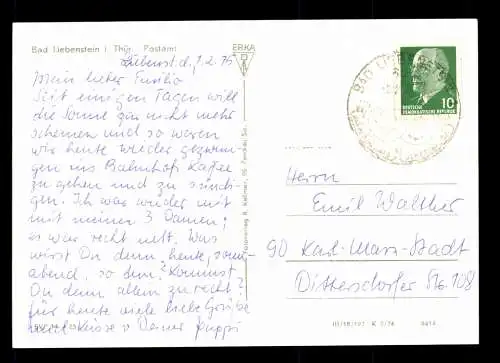 Bad Liebenstein i. Thür. Postamt
ERKA
Liebenst. d. 1.2.75
Mein lieber Emilio
Seit einigen Tagen will
die Sonne gar nicht mehr
scheinen und so waren
wir heute wieder gezwun-
gen ins Bahnhofs Kaffee
zu gehen und zu sündi-
gen. Ich war wieder mit
mit meinen 3 Damen;
es war recht nett. Was
wirst Du denn heute, sonn-
abend, so tun? Kommst
Du denn allein zu recht?
für heute viele liebe Grüße
und Küsse v. Deiner Puppi
BAD LIEBENSTEIN
10
DEUTSCHE
DEMOKRATISCHE REPUBLIK
Herrn
Emil Walther
90 Karl-Marx-Stadt
Dittersdorfer Str. 108
III/18/197 K 1/74